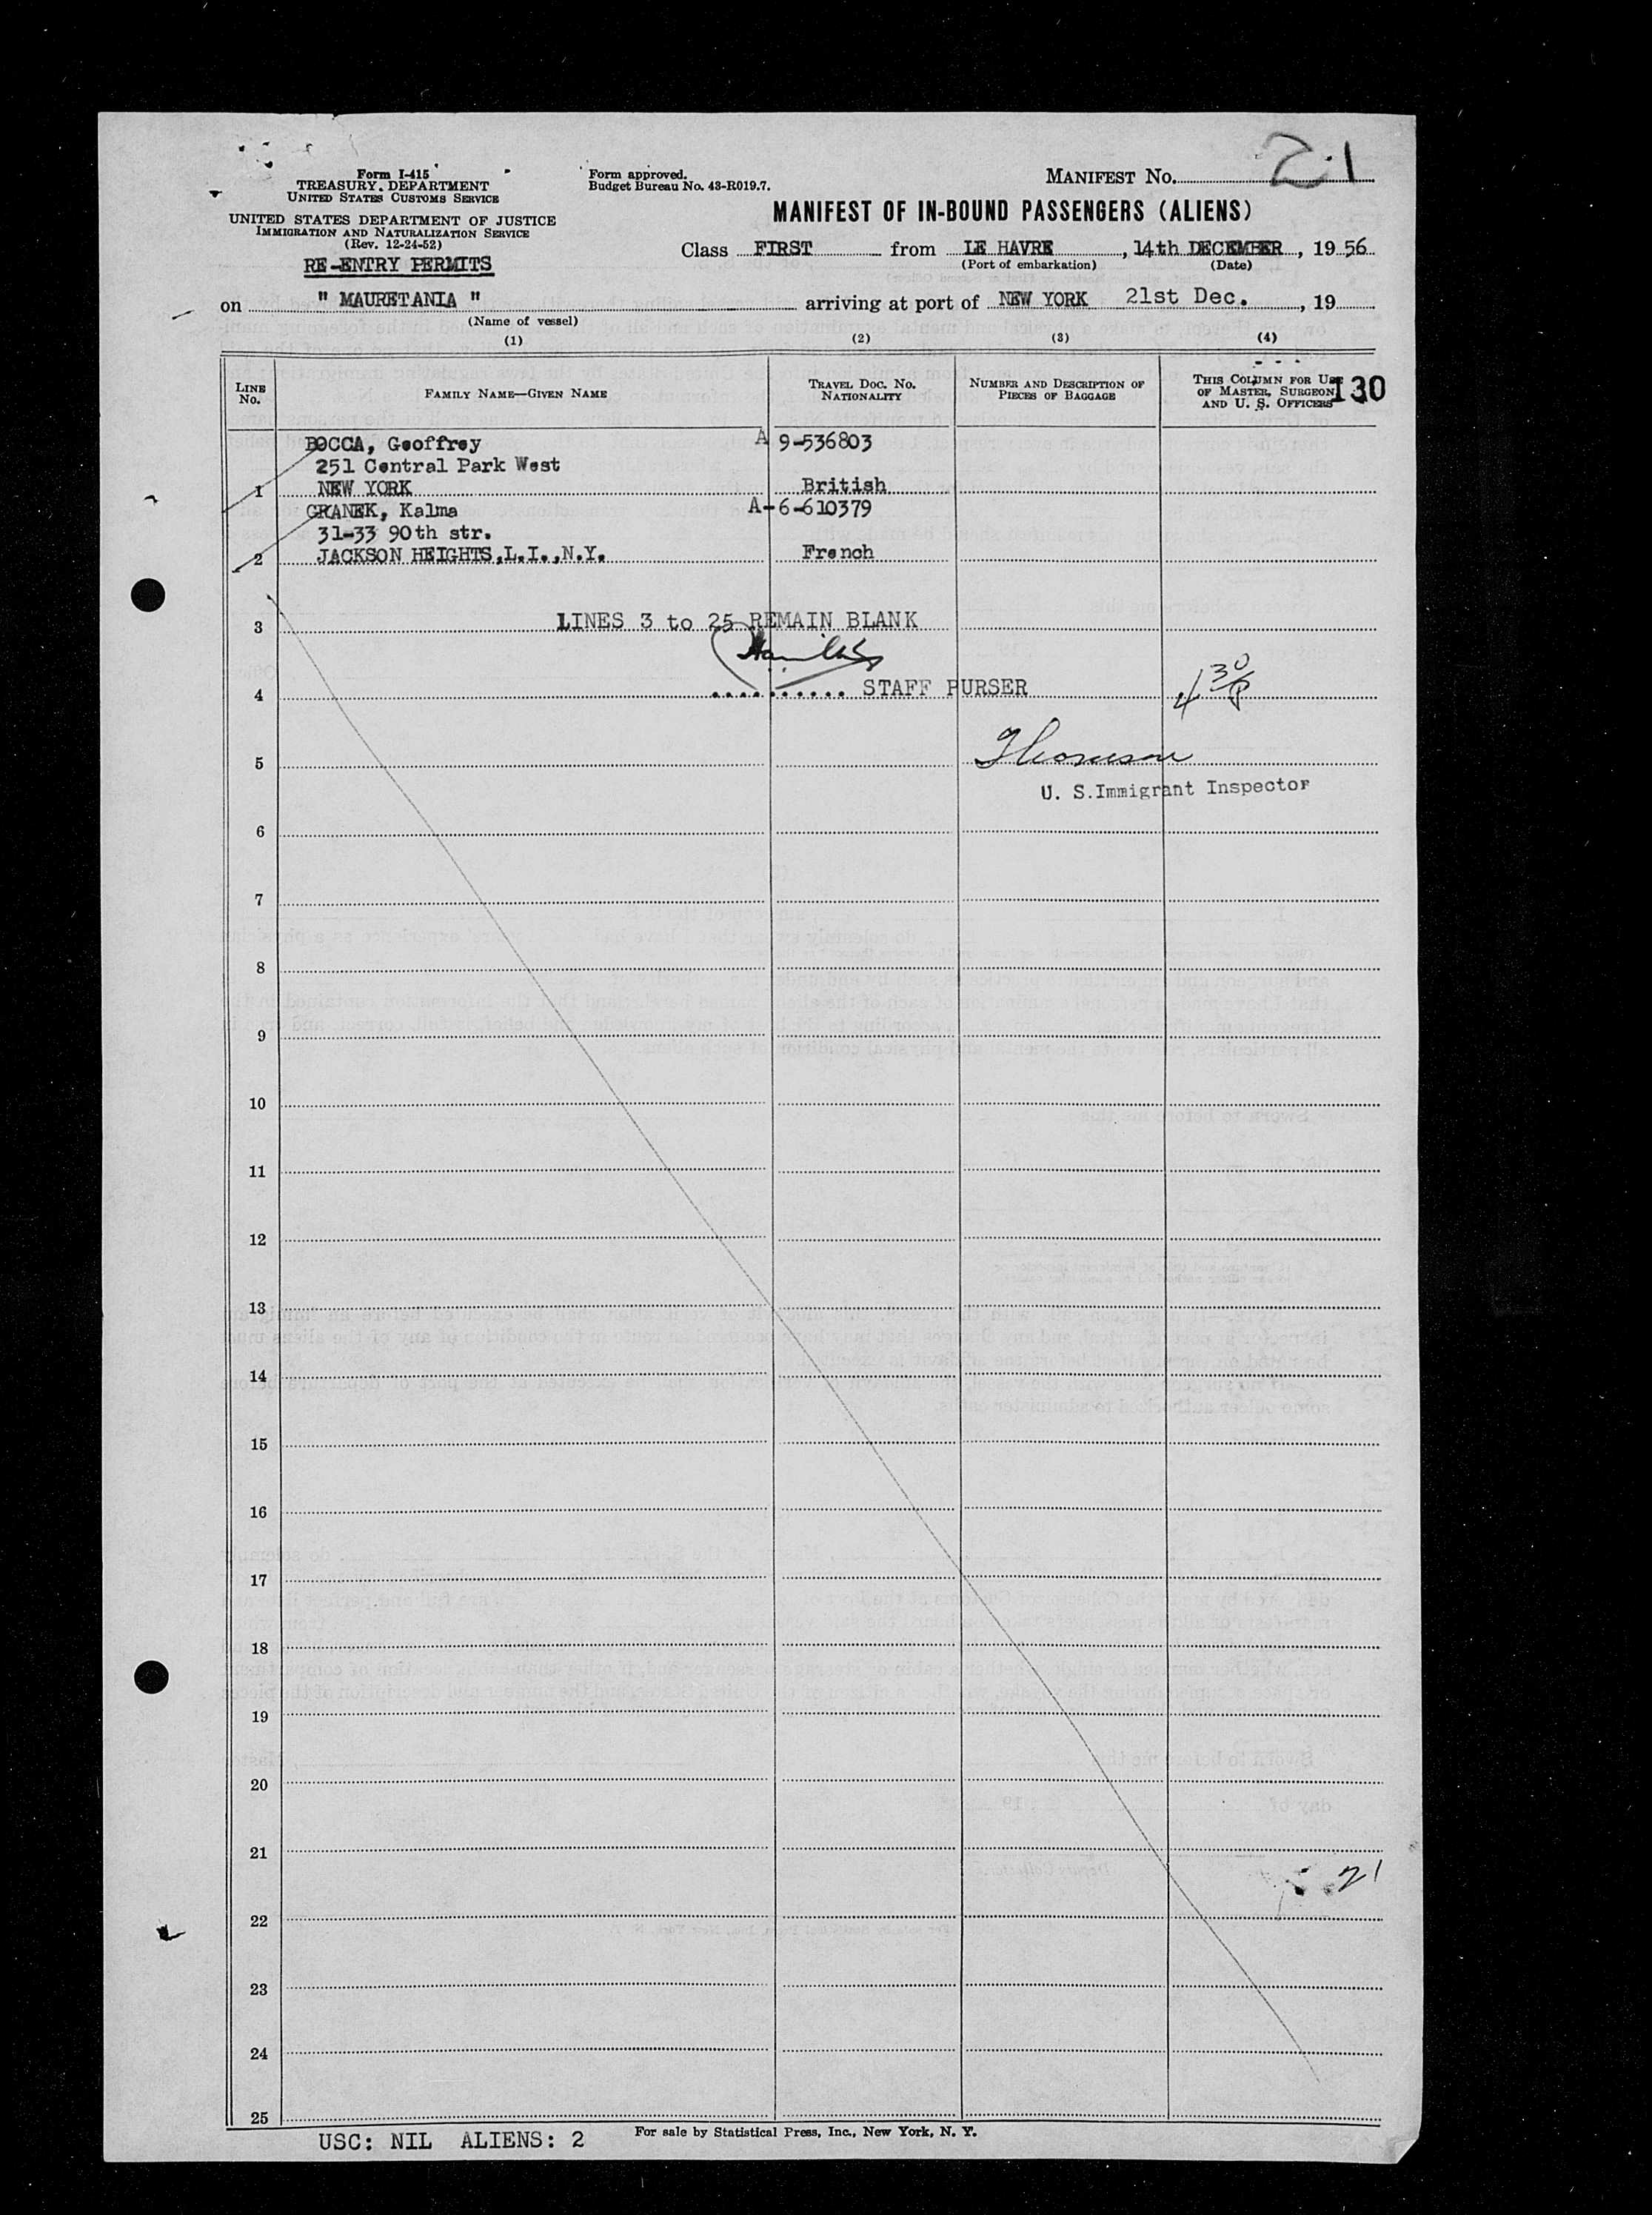 Form I-415
TREASURY DEPARTMENT
UNITED STATES CUSTOMS SERVICE
UNITED STATES DEPARTMENT OF JUSTICE
IMMIGRATION AND NATURALIZATION SERVICE
(Rev. 12-24-52)
RE-ENTRY PERMITS
Form approved.
Budget Bureau No. 43-R019.7.
MANIFEST NO. 21
MANIFEST OF IN-BOUND PASSENGERS (ALIENS)
Class FIRST from LE HAVRE, 14th DECEMBER, 1956
(Port of embarkation) (Date)
on " MAURETANIA " arriving at port of NEW YORK 21st Dec., 19
(Name of vessel)
(1) (2) (3) (4)
LINE No. FAMILY NAME—GIVEN NAME TRAVEL DOC. NO. NATIONALITY NUMBER AND DESCRIPTION OF PIECES OF BAGGAGE THIS COLUMN FOR USE OF MASTER, SURGEON, AND U. S. OFFICERS 130
BOCCA, Geoffrey A 9-536803
251 Central Park West
1 NEW YORK British
GRANEK, Kalma A-6-610379
31-33 90th str.
2 JACKSON HEIGHTS,L.I.,N.Y. French
3 LINES 3 to 25 REMAIN BLANK
4 .......... STAFF PURSER
5 Thomson
U. S.Immigrant Inspector
6
7
8
9
10
11
12
13
14
15
16
17
18
19
20
21
21
22
23
24
25
USC: NIL ALIENS: 2 For sale by Statistical Press, Inc., New York, N. Y.